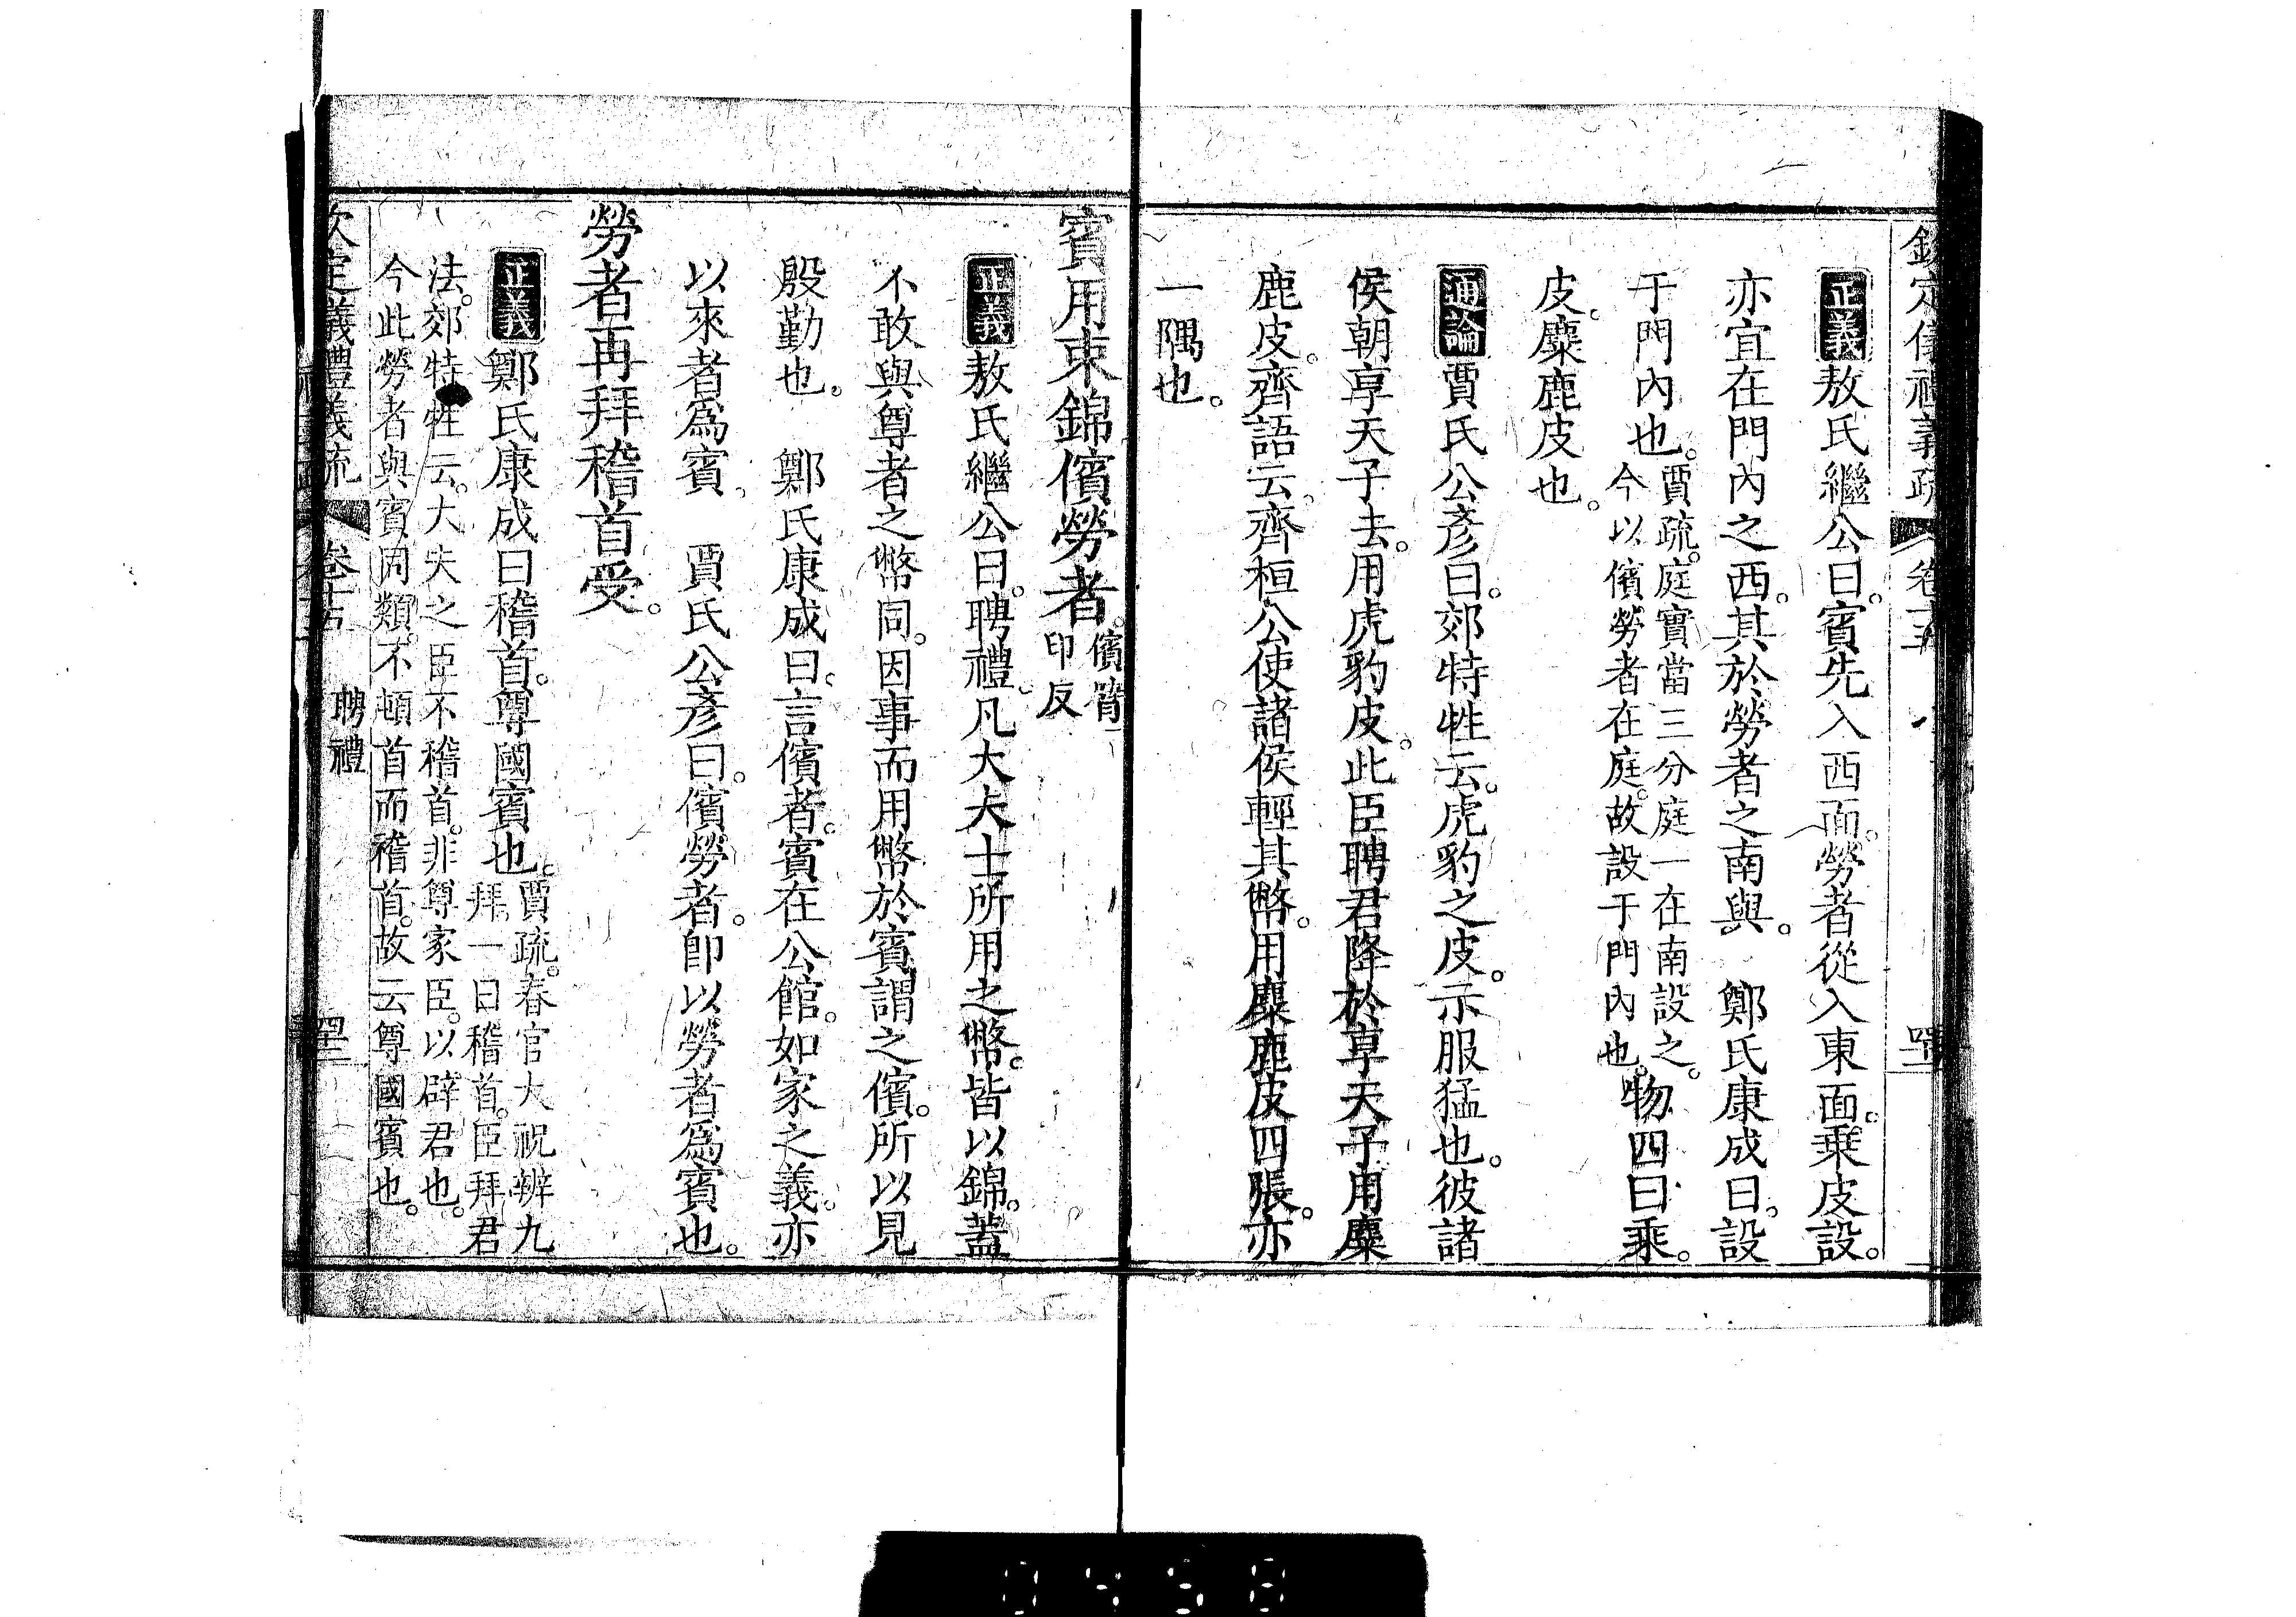 欽定儀禮義疏 卷十五
正義敖氏繼公曰。賓先入西面。勞者從入東面。乘皮設。
亦宜在門內之西。其於勞者之南與。 鄭氏康成曰。設
于門內也。賈疏。庭實當三分庭一在南設之。今以儐勞者在庭。故設于門內也。物四曰乘。
皮。麋鹿皮也。
通論賈氏公彥曰。郊特牲云。虎豹之皮。示服猛也。彼諸
侯朝享天子法。用虎豹皮。此臣聘君降於享天子。用麋
鹿皮。齊語云。齊桓公使諸侯輕其幣。用麋鹿皮四張。亦
一隅也。
賓用束錦儐勞者。儐。賓印反
正義敖氏繼公曰。聘禮。凡大夫士所用之幣。皆以錦。蓋
不敢與尊者之幣同。因事而用幣於賓。謂之儐。所以見
殷勤也。 鄭氏康成曰。言儐者。賓在公館。如家之義。亦
以來者爲賓。 賈氏公彥曰。儐勞者。卽以勞者爲賓也。
勞者再拜稽首受。
正義鄭氏康成曰稽首。尊國賓也。賈疏。春官大祝辨九
拜。一曰稽首。臣拜君
法。郊特牲云。大夫之臣不稽首。非尊家臣。以辟君也。
今此勞者與賓同類。不頓首而稽首。故云尊國賓也。
欽定義禮義疏 卷十五 聘禮
0458